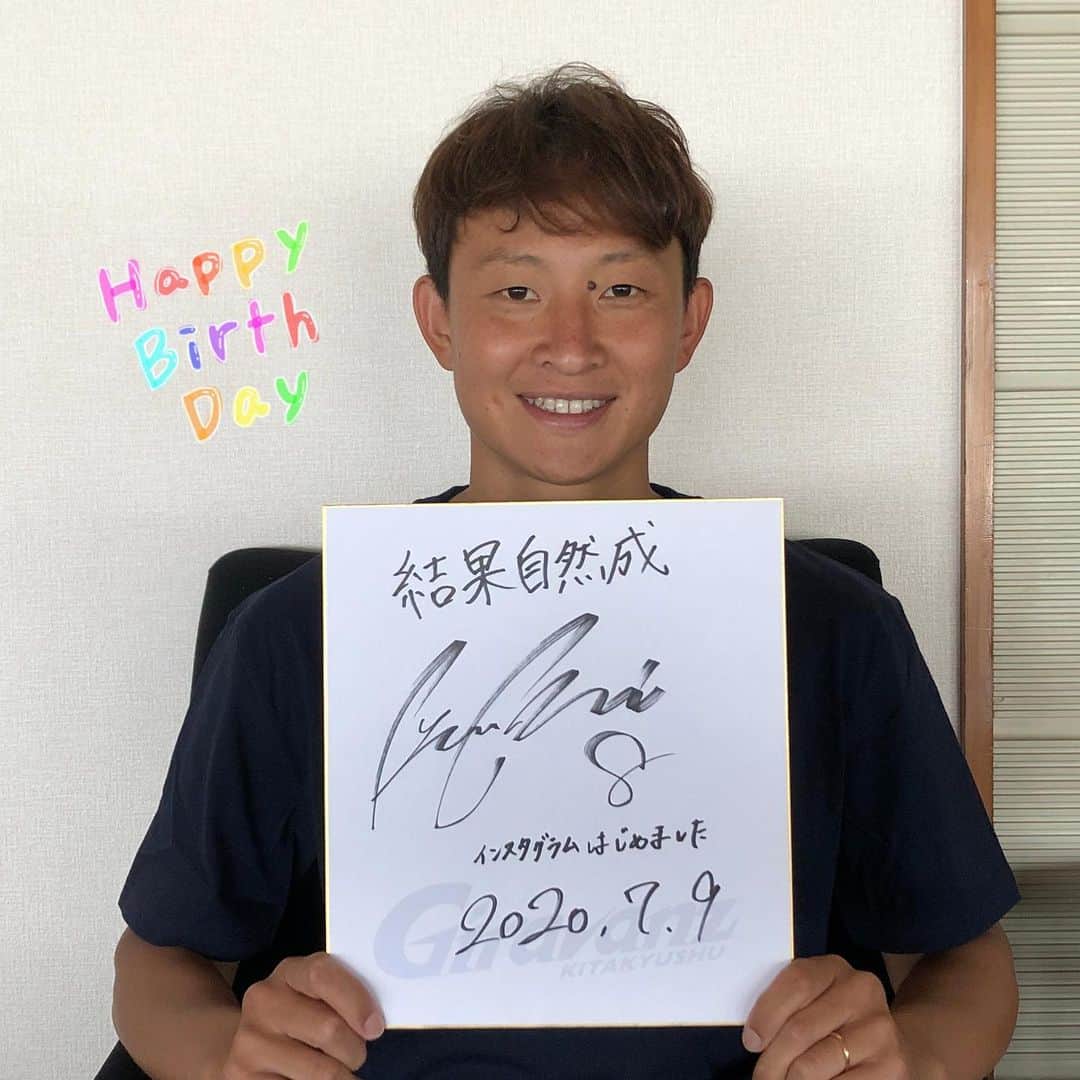 Happy
Birth
Day
結果自然成
8
インスタグラムはじめました
2020.7.9
Giravanz
KITAKYUSHU